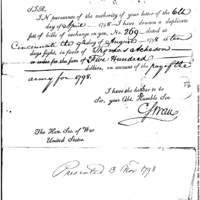 SIR,
IN pursuance of the authority of your letter of the 6th
day of April 1798 I have drawn a duplicate
set of bills of exchange on you, No. 269 dated
Cincinnati the 9 day of August 1798 at ten
days sight, in favor of Thomas Acheson
or order for the sum of Five Hundred
dollars, on account of the pay of the
army for 1798.
I have the honor to be
Sir, your Obt. Humble Ser.
C Swan
The Hon. Sec. of War
United States
Presented 13 Nov 1798